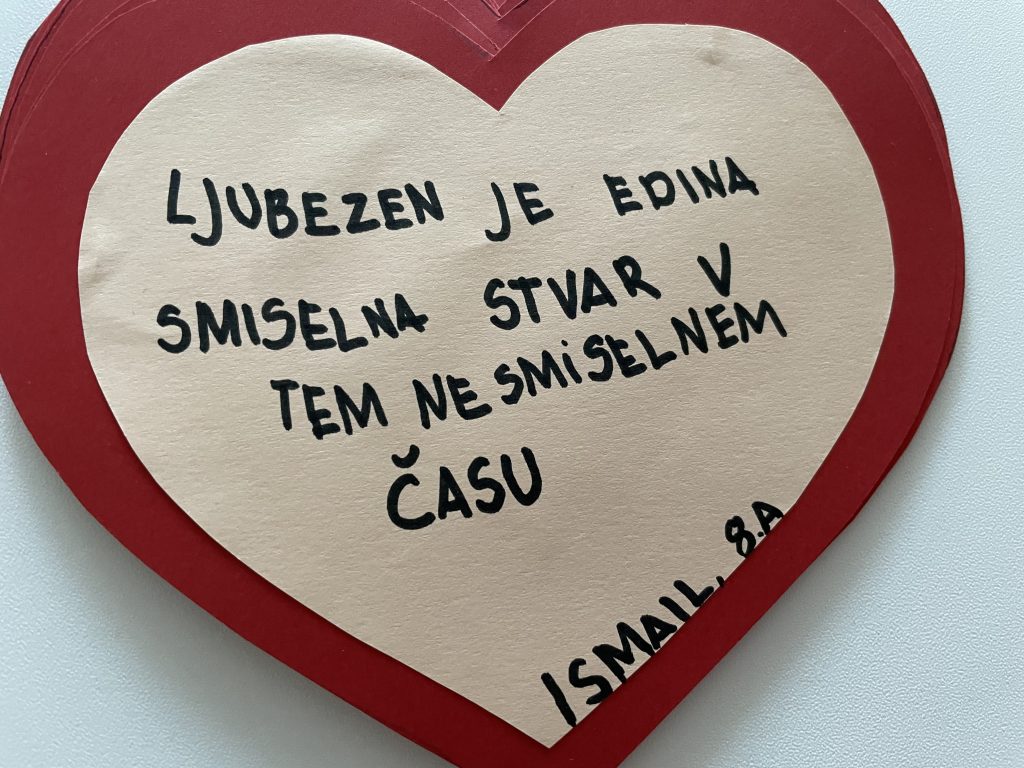 LJUBEZEN JE EDINA
SMISELNA STVAR V
TEM NESMiSELNEM
ČASU
ISMAIL, 8.A